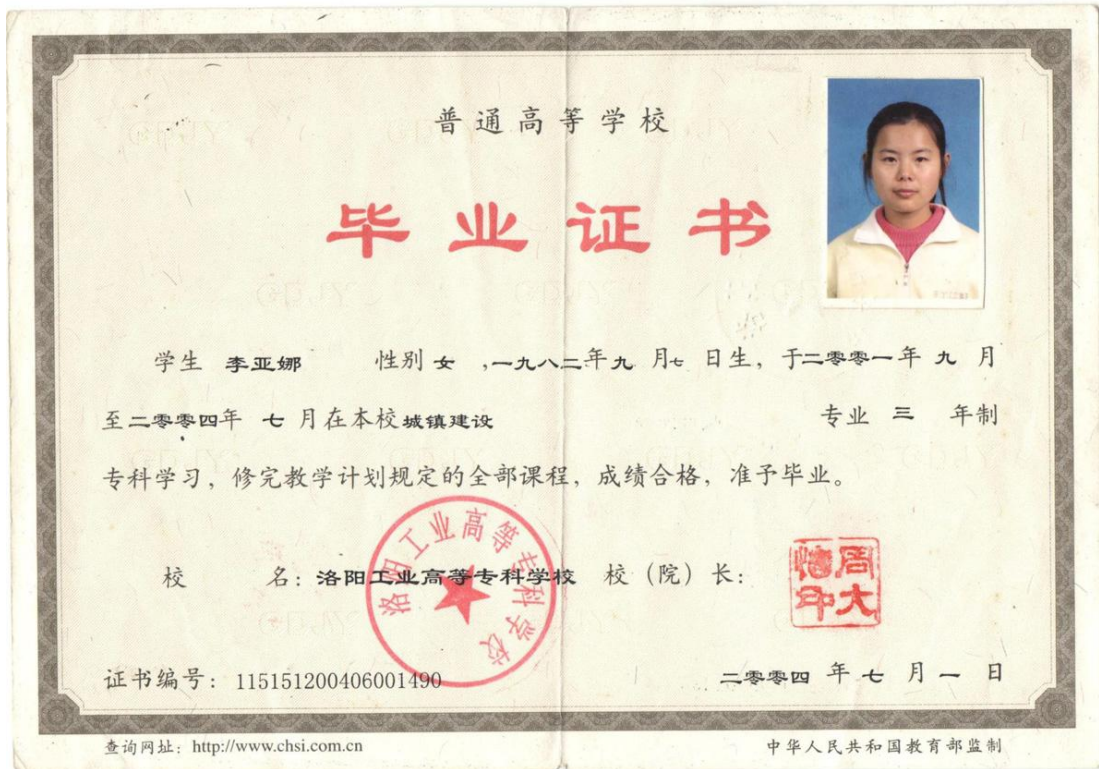 普通高等学校
毕业证书
学生 李亚娜 性别 女 ,一九八二年九 月七 日生，于二零零一年 九 月
至二零零四年 七 月在本校城镇建设 专业 三 年制
专科学习，修完教学计划规定的全部课程，成绩合格，准予毕业。
洛阳工业高等专科学校
校 名：洛阳工业高等专科学校 校（院）长：
证书编号：115151200406001490
二零零四 年 七 月 一 日
查询网址：http://www.chsi.com.cn
中华人民共和国教育部监制